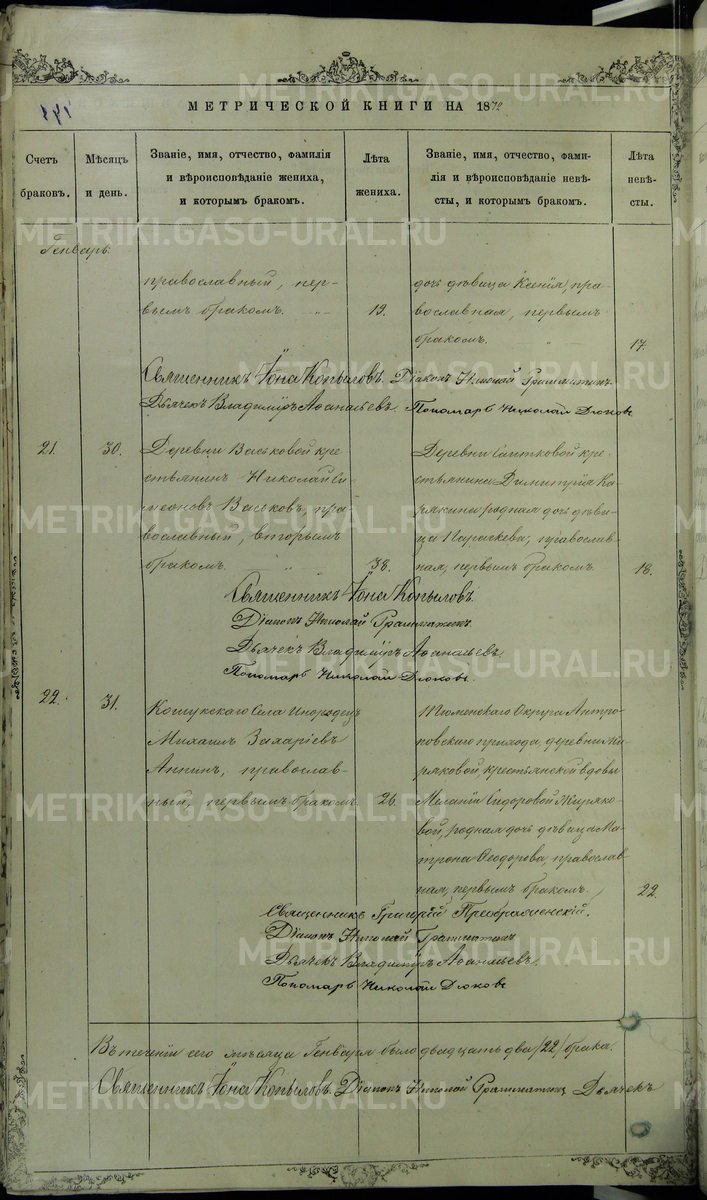 171
МЕТРИЧЕСКОЙ КНИГИ НА 1872
Счетъ браковъ.
Мѣсяцъ и день.
Званіе, имя, отчество, фамилія
и вѣроисповѣданіе жениха,
и которымъ бракомъ.
Лѣта жениха.
Званіе, имя, отчество, фами-
лія и вѣроисповѣданіе невѣ-
сты, и которымъ бракомъ.
Лѣта невѣ-
сты.
Генварь
православный, пер-
вымъ бракомъ. 19.
дочь дѣвица Ксенія, пра-
вославная, первымъ
бракомъ. 17.
Священникъ Іона Копыловъ. Діаконъ Николай Грамматинъ
Дьячекъ Владиміръ Аѳанасьевъ. Пономарь Николай Дюковъ
21. 30. Деревни Васьковой кре-
стьянинъ Николай Си-
меоновъ Васьковъ, пра-
вославный, вторымъ
бракомъ. 38.
Деревни кре-
стьянина Димитрія Ка-
рякина родная дочь дѣви-
ца Параскева, православ-
ная, первымъ бракомъ. 18.
Священникъ Іона Копыловъ.
Діаконъ Николай Грамматинъ
Дьячекъ Владиміръ Аѳанасьевъ.
Пономарь Николай Дюковъ.
22. 31. Кошукскаго Села Инородецъ
Михаилъ Захаріевъ
Аннинъ, православ-
ный, первымъ бракомъ. 26.
Тюменскаго Округа Антро-
повскаго прихода, деревни
крестьянской вдовы
Меланіи Сидоровой Жиряко-
вой, родная дочь дѣвица Ма-
трона Ѳеодорова, православ-
ная, первымъ бракомъ. 22.
Священникъ Григорій Преображенскій.
Діаконъ Николай Грамматинъ
Дьячекъ Владиміръ Аѳанасьевъ.
Пономарь Николай Дюковъ
Въ теченіи сего мѣсяца Генваря было двадцать два /22/ брака.
Священникъ Іона Копыловъ. Діаконъ Николай Грамматинъ Дьячекъ
METRIKI.GASO-URAL.RU